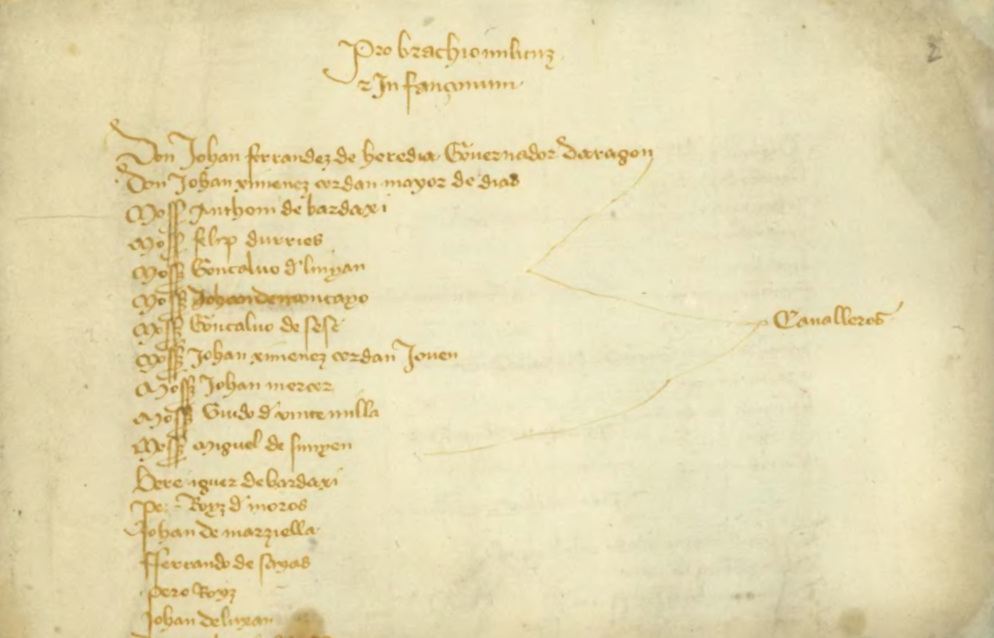 Pro brachio militum
z Infançonum
2
Don Johan ferrandez de heredia Governador daragon
Don Johan ximenez cerdan mayor de dias
Moss Anthoni de bardaxi
Moss felip durries
Moss Goncalvo d'linyan
Moss Johan de moncayo
Moss Goncalvo de sese
Moss Johan ximenez cerdan Joven
Cavalleros
Moss Johan mercer
Moss Guido d'vintemilla
Moss Miguel de
Berenguer de bardaxi
Pero Royz d'moros
Johan de marziella
fferrando de sayas
Pero Royz
Johan de luxan